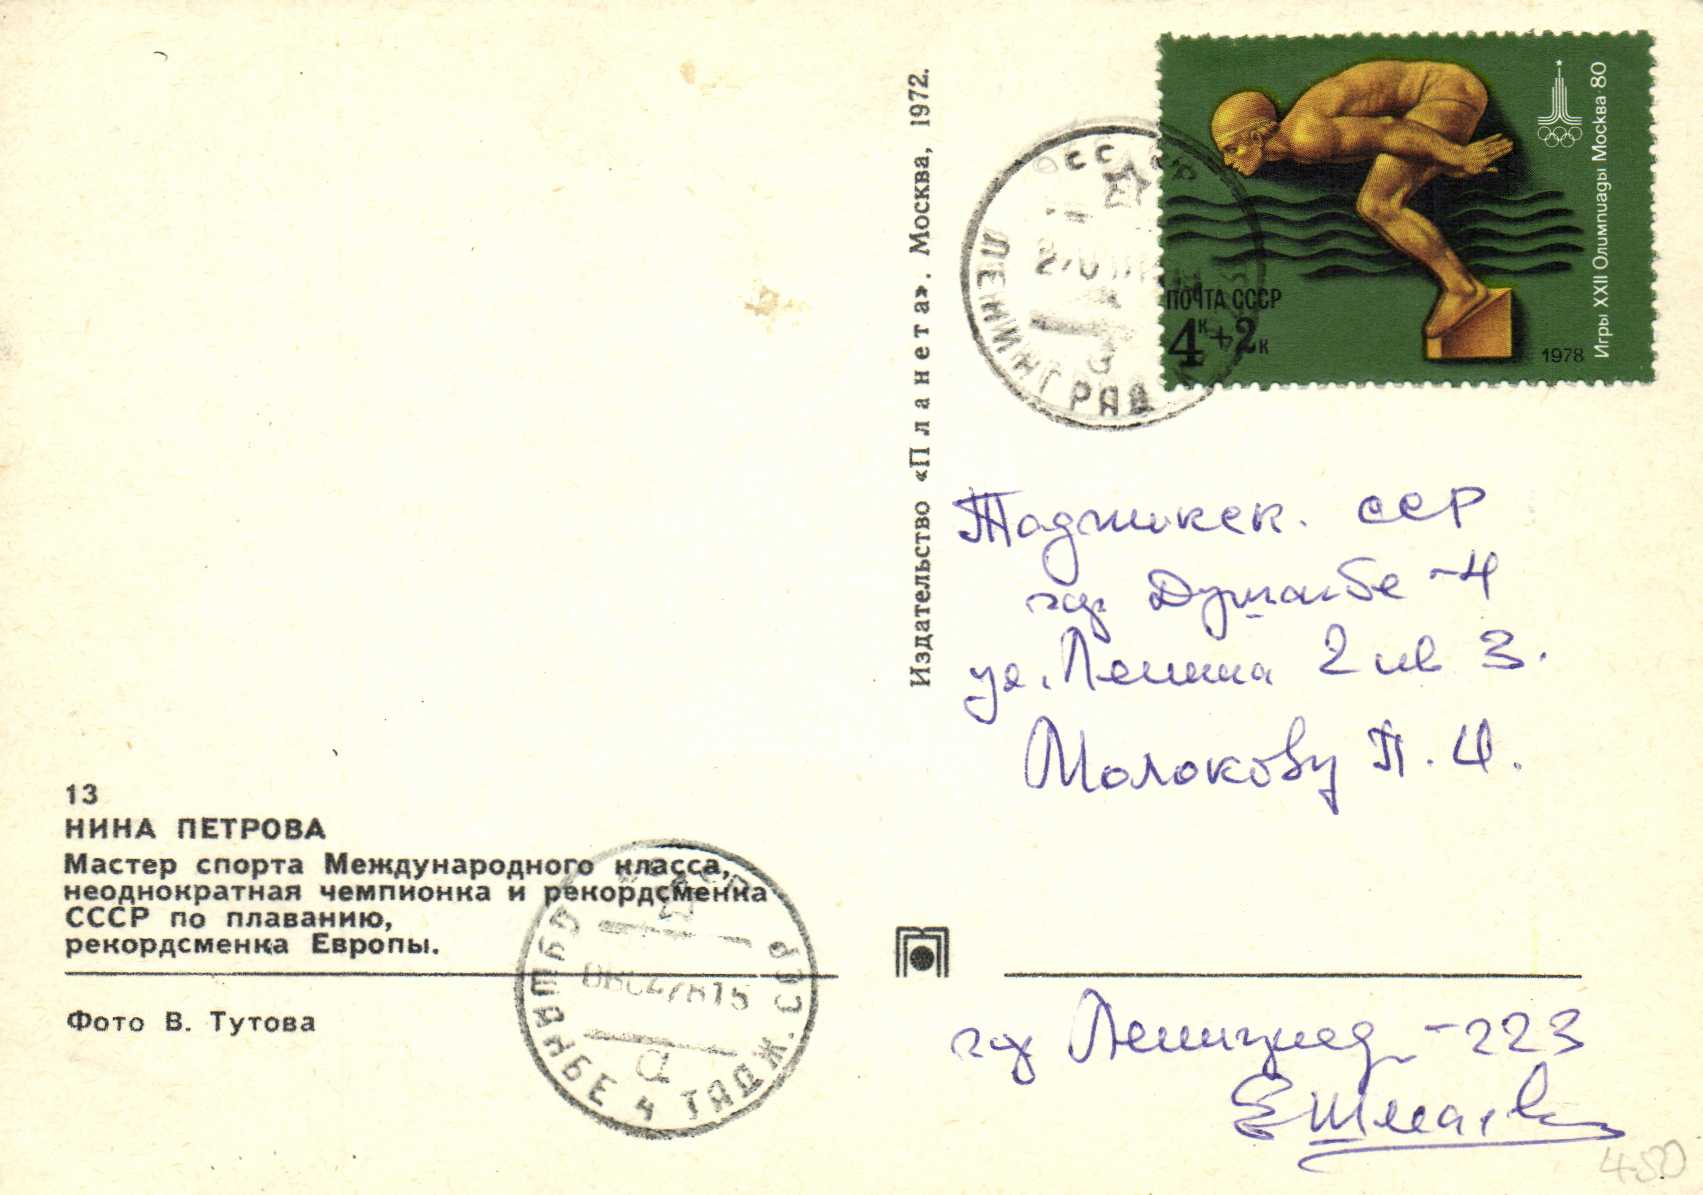 Издательство «Планета». Москва, 1972.
Игры XXII Олимпиады Москва·80
ПОЧТА СССР
4к+2к
1978
ЛЕНИНГРАД
Таджикск. ССР
гор Душанбе-4
ул. Ленина 2 кв 3.
Молокову П. И.
13
НИНА ПЕТРОВА
Мастер спорта Международного класса,
неоднократная чемпионка и рекордсменка
СССР по плаванию,
рекордсменка Европы.
Фото В. Тутова
ДУШАНБЕ 4 ТАДЖ. ССР
а
гор Ленинград-223
450